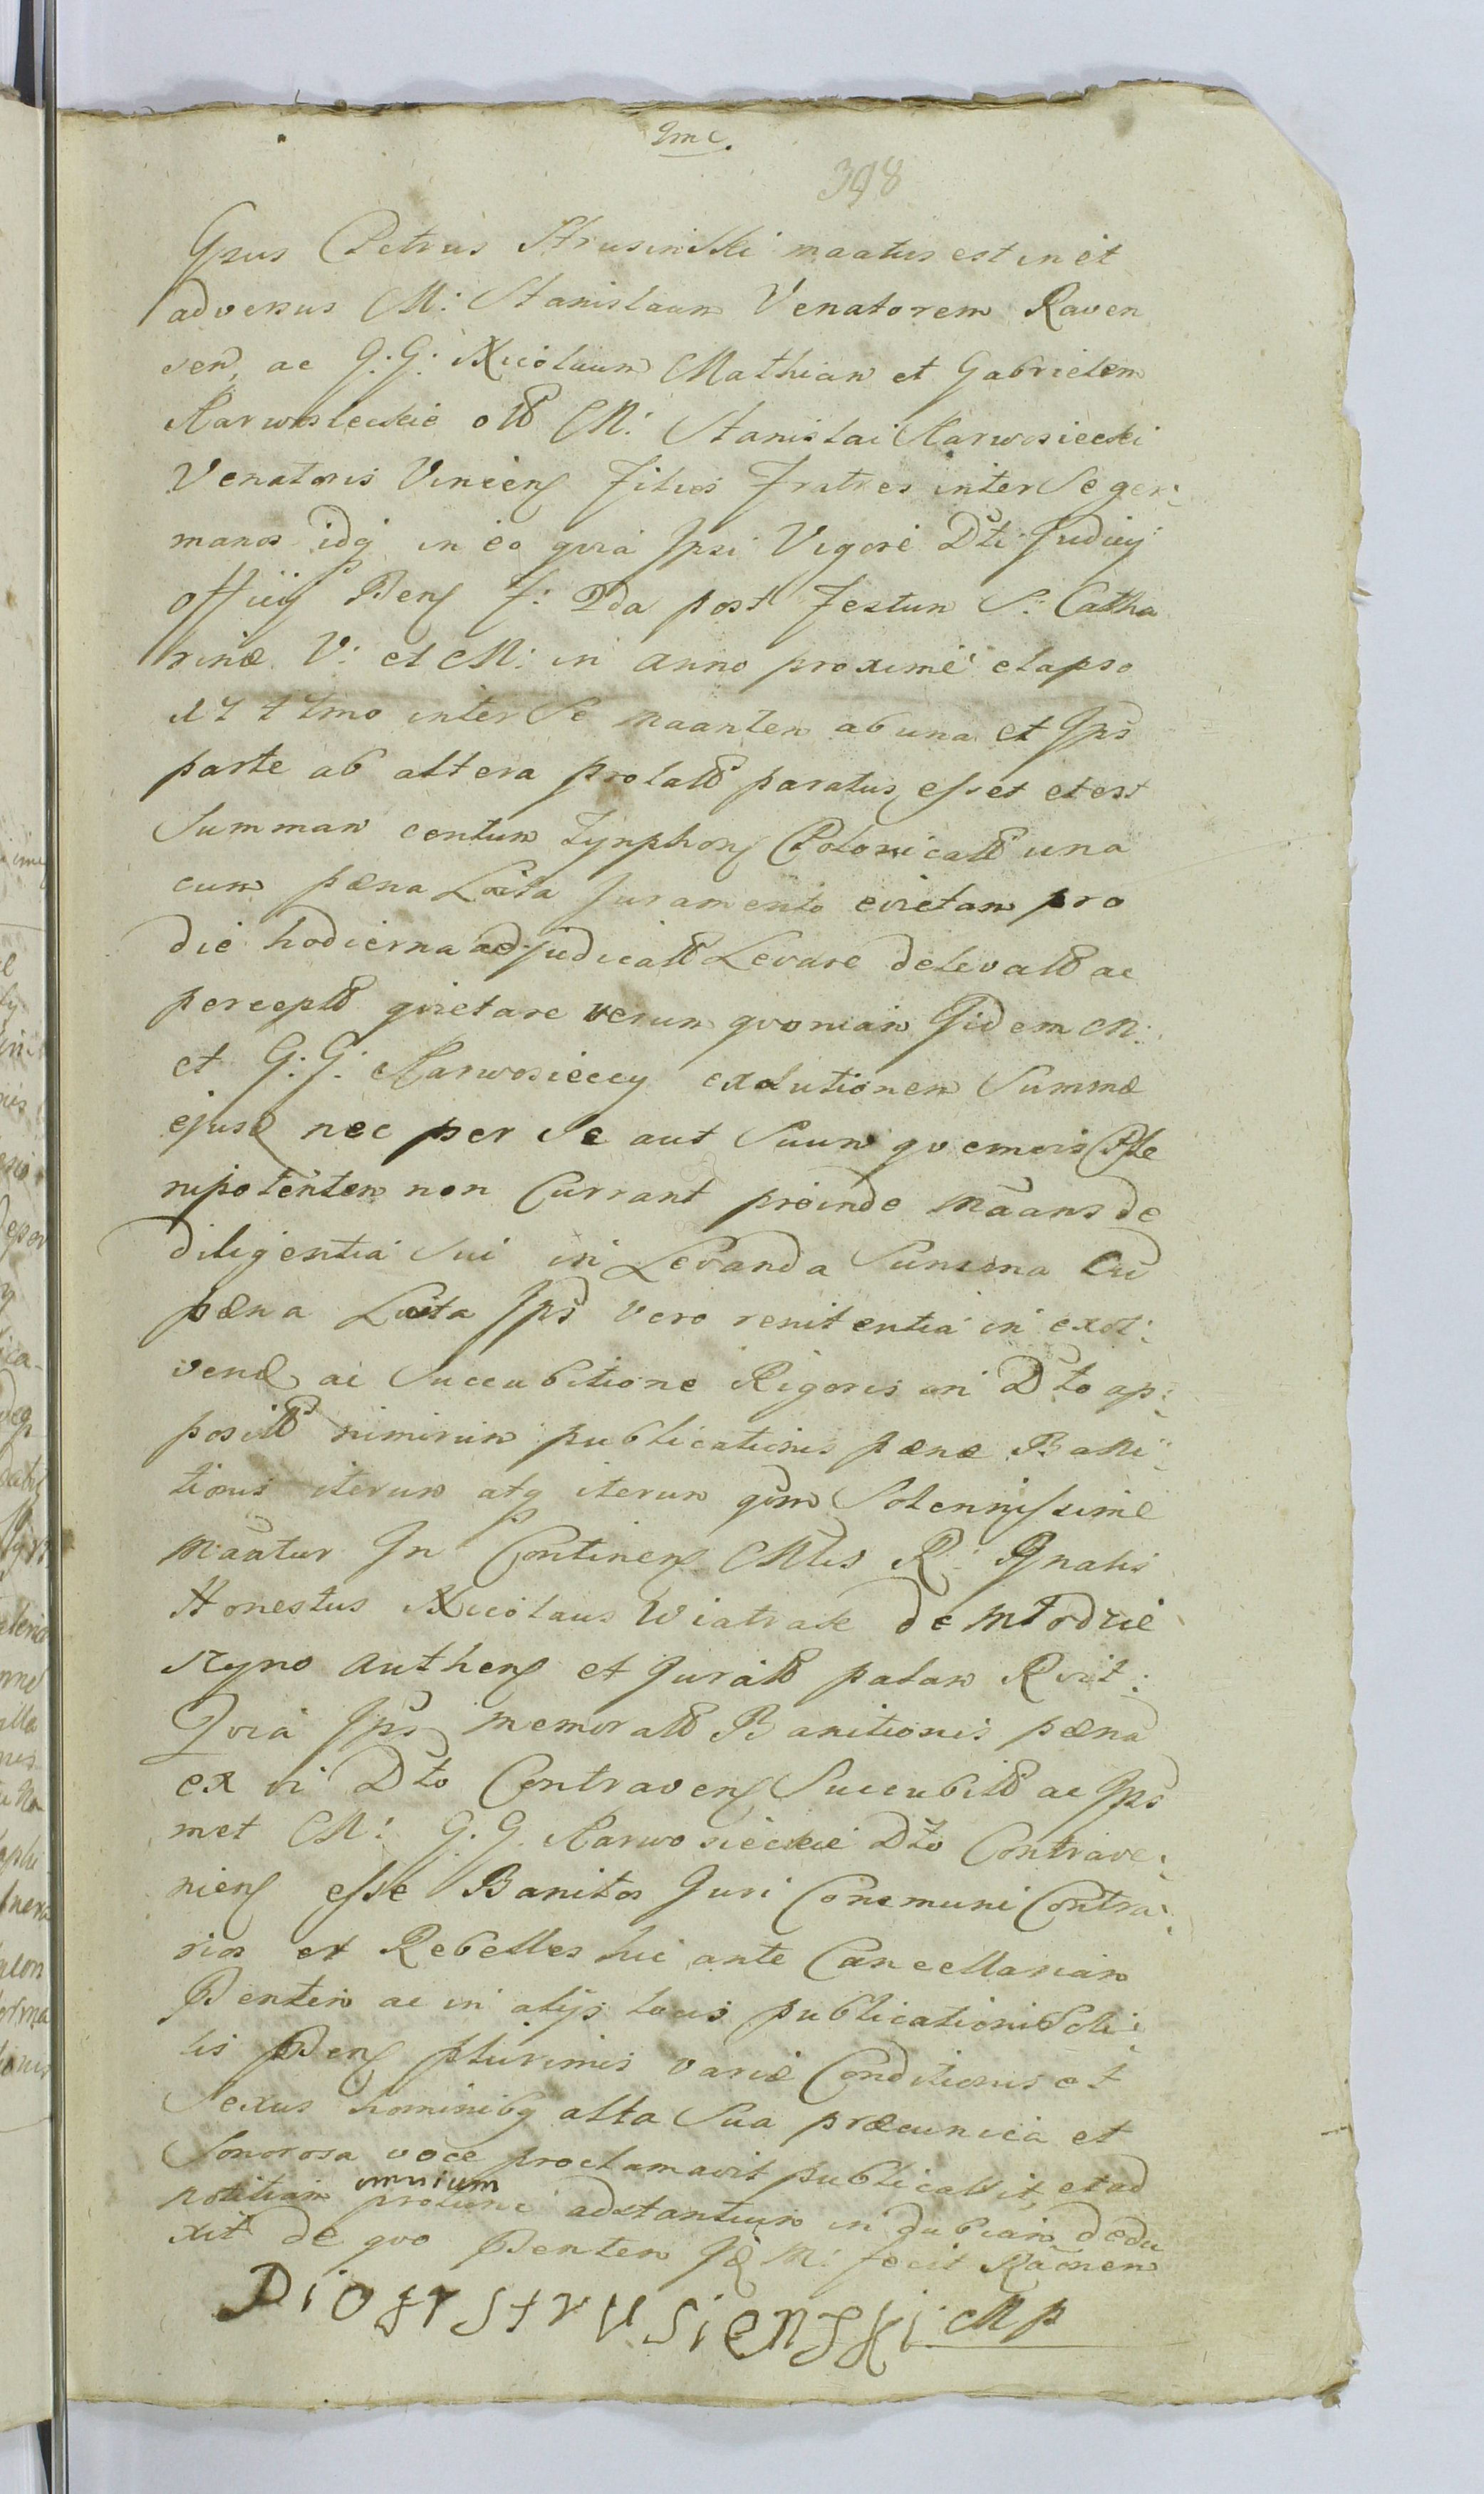 Qmc.
398
Gsus Petrus Strusinski maatus est in et
adversus M: Stanislaum Venatorem Raven
sem, ac G: G: Nicolaum Mathiam et Gabrielem
Karwosieckie M: Stanislai Karwosiecki
Venatoris Filios Fratres inter Se ger:
manos idq in eo qvia Ipsi Vigore Dti Judicij
officij Pens F: 2da post Festum S: Catha
rinæ V: et M: in anno proxime elapso
inter Se maantem ab una et Ips
parte ab altera prolatt paratus esset et est
Summam centum Tynphons Polonicatt una
cum pæna Juramento evictam pro
die hodierna adjudicatt Levare delevatt ac
perceptt qvietare verum qvoniam Iidem M:
et G: G: Karwosieccy exolutionem Summæ
ejusd nec per Se aut Suum qvemvis Ple
nipotentem non Currant proinde maans de
diligentia Sui in Levanda Summa Cu
pæna Ips vero renitentia in exol:
vend ac Succubitione Rigoris in Dto ap:
positt nimirum publicationis pænæ Bani:
tionis iterum atq iterum qvm Solennissime
maatur In Continens Mtis R: Gnalis
Honestus Nicolaus Wiatrak de Młodzie
szyno authens et Juratt palam Rvit:
Qvia Ips memoratt Banitionis pæna
ex vi Dto Contravens Succubitt ac Ips
met M: G: G: Karwosieckie Dto Contrave:
niens esse Banitos Juri Communi Contra:
rios et Rebelles hic ante Cancellariam
Pentem ac in alijs locis publicationi Soli:
tis Pens plurimis variæ Conditionis et
Sexus hominibq alta Sua præconica et
Sonorosa voce proclamavit publicavit, et ad
notitiam omnium protunc adstantium in dubiam dedu
xit de qvo Pentem Id M: fecit Raonem
Piotr Strusienski Mp